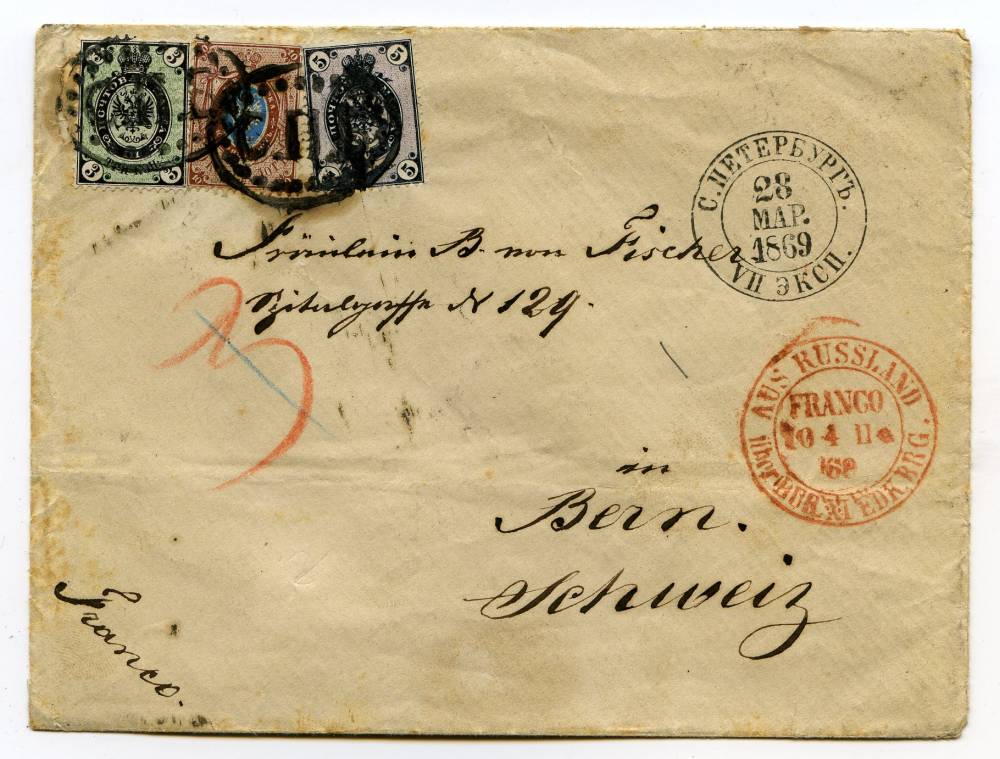 3 3 3 3
10 10
5 5 5 5
С. ПЕТЕРБУРГЪ.
28
МАР.
1869
VII ЭКСП.
Fräulein B. von Fischer
Spitalgasse N 129.
AUS RUSSLAND
FRANCO
10 4 II
über
in
Bern.
Schweiz
Franco.